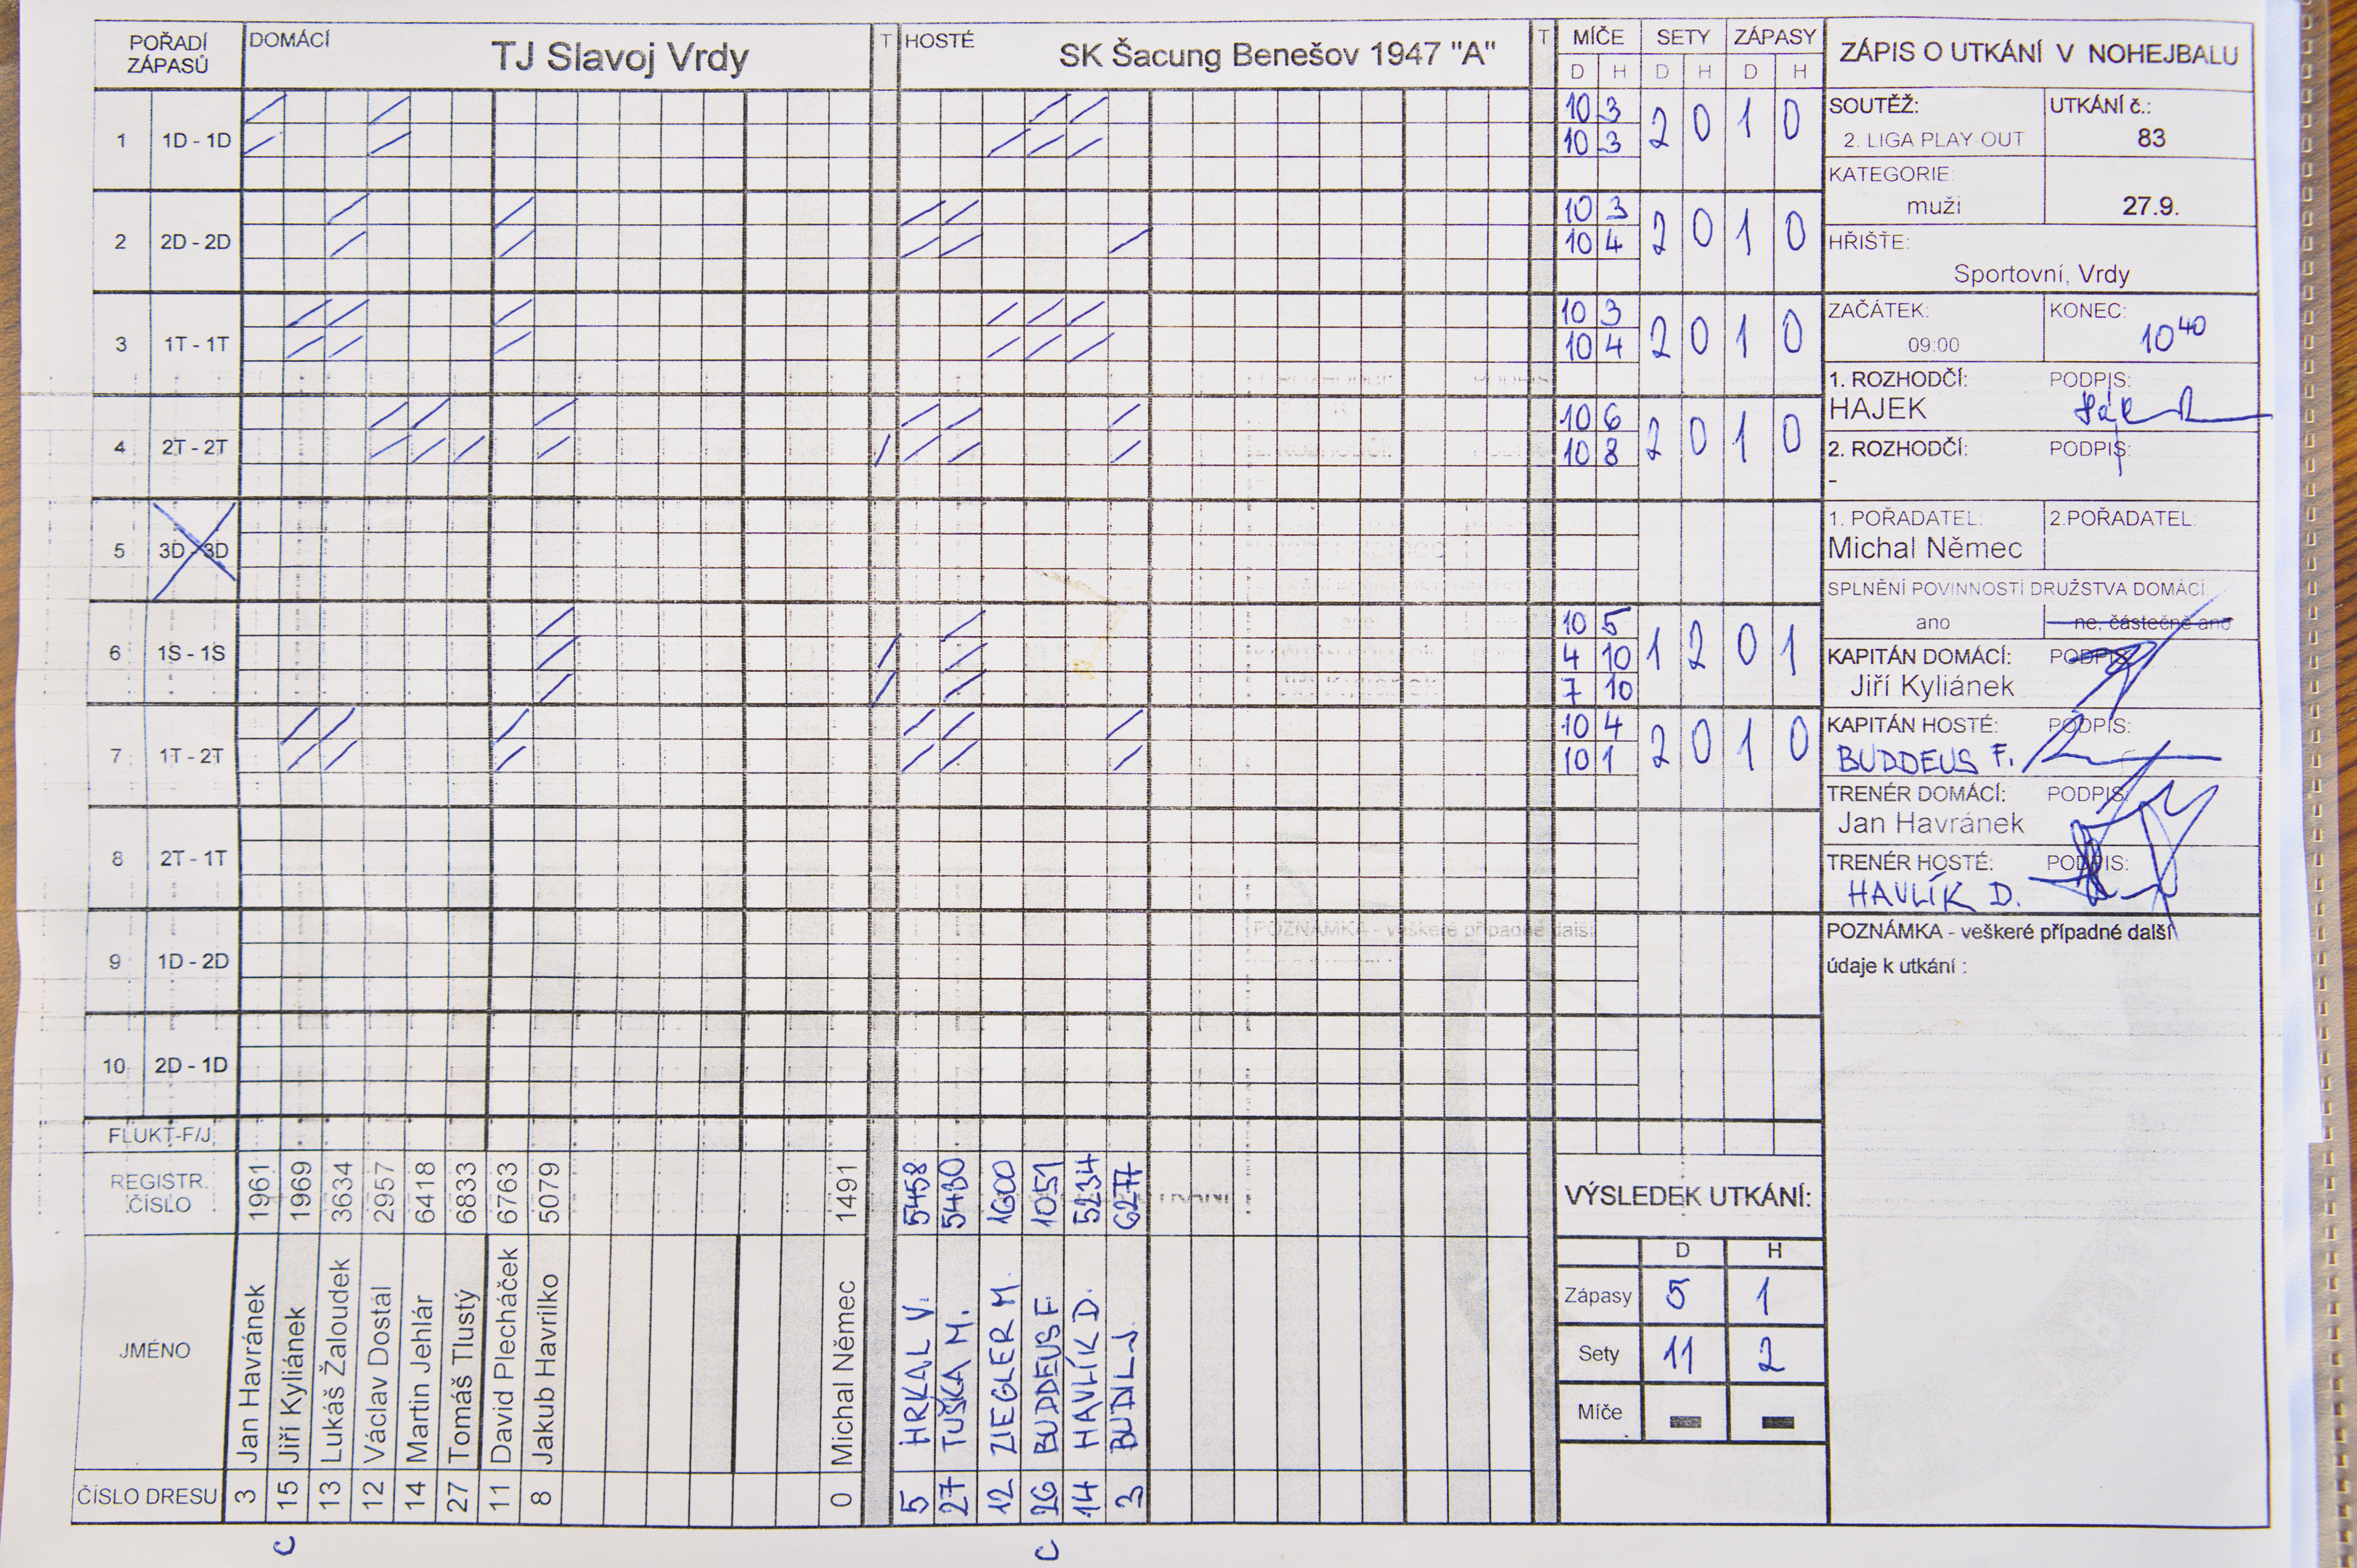 POŘADÍ ZÁPASŮ
DOMÁCÍ TJ Slavoj Vrdy T
HOSTÉ SK Šacung Benešov 1947 "A" T
MÍČE SETY ZÁPASY
D H D H D H
1 1D - 1D 10 3 2 0 1 0
10 3
2 2D - 2D 10 3 2 0 1 0
10 4
3 1T - 1T 10 3 2 0 1 0
10 4
4 2T - 2T 10 6 2 0 1 0
10 8
5 3D - 3D
6 1S - 1S 10 5 1 2 0 1
4 10
7 10
7 1T - 2T 10 4 2 0 1 0
10 1
8 2T - 1T
9 1D - 2D
10 2D - 1D
FLUKT-F/J
REGISTR. ČÍSLO 1961 1969 3634 2957 6418 6833 6763 5079 1491 5458 5480 1600 1051 5234 6277
JMÉNO Jan Havránek Jiří Kyliánek Lukáš Žaloudek Václav Dostál Martin Jehlár Tomáš Tlustý David Plecháček Jakub Havrilko Michal Němec HRKAL V. TUŠKA M. ZIEGLER M. BUDDEUS F. HAVLÍK D. BUDIL J.
ČÍSLO DRESU 3 15 13 12 14 27 11 8 0 5 27 12 26 14 3
C C
VÝSLEDEK UTKÁNÍ:
D H
Zápasy 5 1
Sety 11 2
Míče
ZÁPIS O UTKÁNÍ V NOHEJBALU
SOUTĚŽ: UTKÁNÍ č.:
2. LIGA PLAY OUT 83
KATEGORIE:
muži 27.9.
HŘIŠTĚ:
Sportovní, Vrdy
ZAČÁTEK: KONEC:
09:00 10 40
1. ROZHODČÍ: PODPIS:
HAJEK
2. ROZHODČÍ: PODPIS:
-
1. POŘADATEL: 2.POŘADATEL:
Michal Němec
SPLNĚNÍ POVINNOSTÍ DRUŽSTVA DOMÁCÍ
ano ne, částečně ano
KAPITÁN DOMÁCÍ: PODPIS:
Jiří Kyliánek
KAPITÁN HOSTÉ: PODPIS:
BUDDEUS F.
TRENÉR DOMÁCÍ: PODPIS:
Jan Havránek
TRENÉR HOSTÉ: PODPIS:
HAVLÍK D.
POZNÁMKA - veškeré případné další
údaje k utkání :